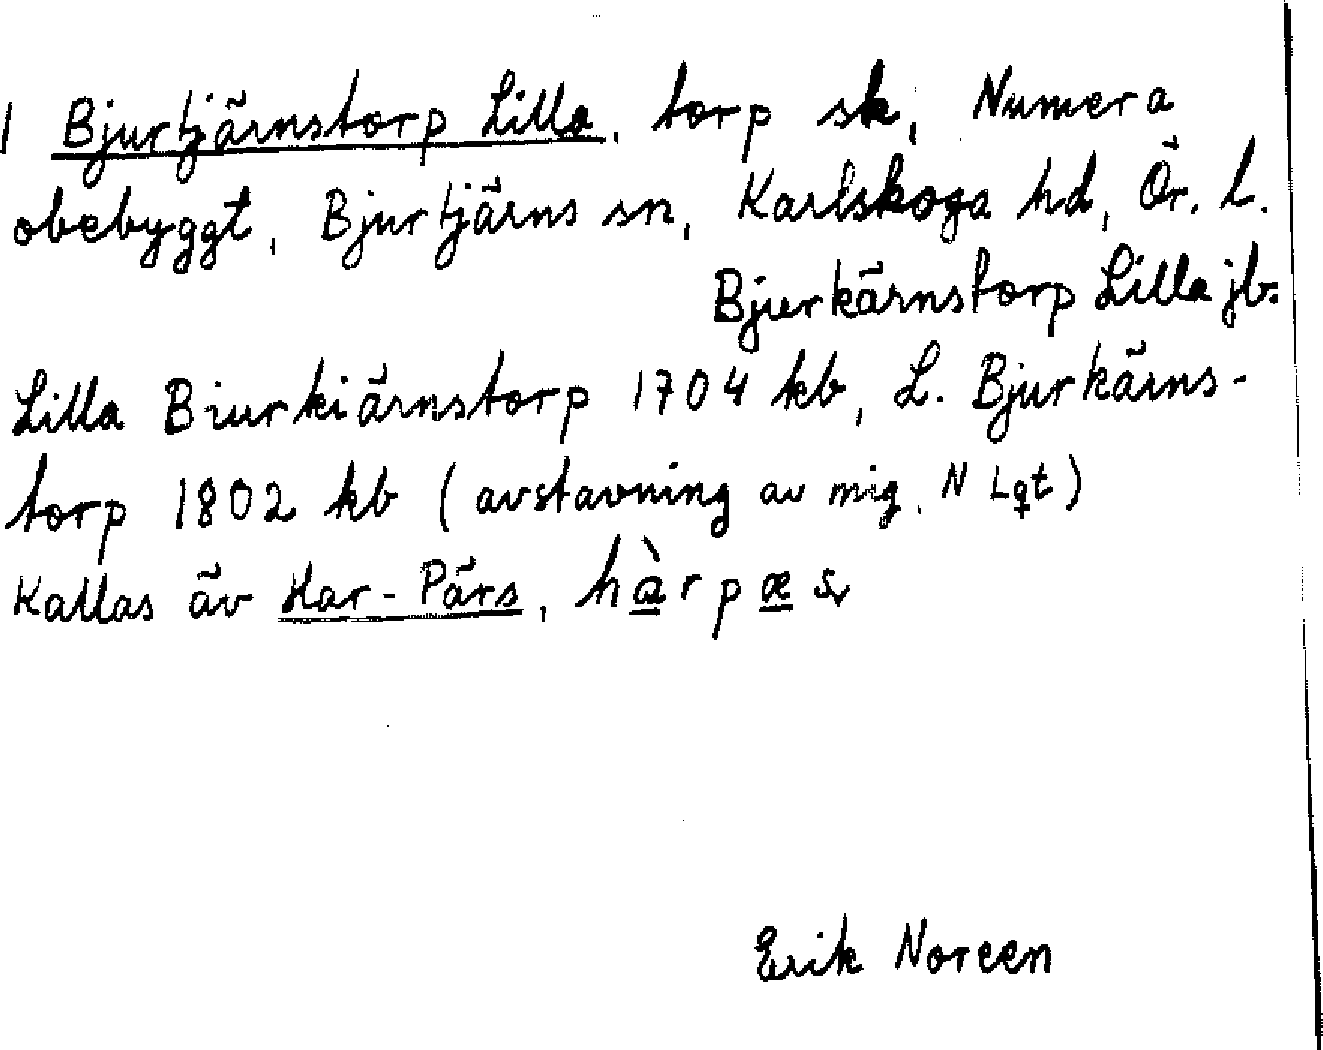 1 Bjurtjärnstorp Lilla, torp sk, Numera
obebyggt, Bjurtjärns sn, Karlskoga hd, Ör. L.
Bjurkärnstorp Lilla jb.
Lilla Biurkiärnstorp 1704 kb, L. Bjurkärns-
torp 1802 kb (avstavning av mig, N Lqt)
Kallas äv Har-Pärs, hàrpæs
Erik Noreen